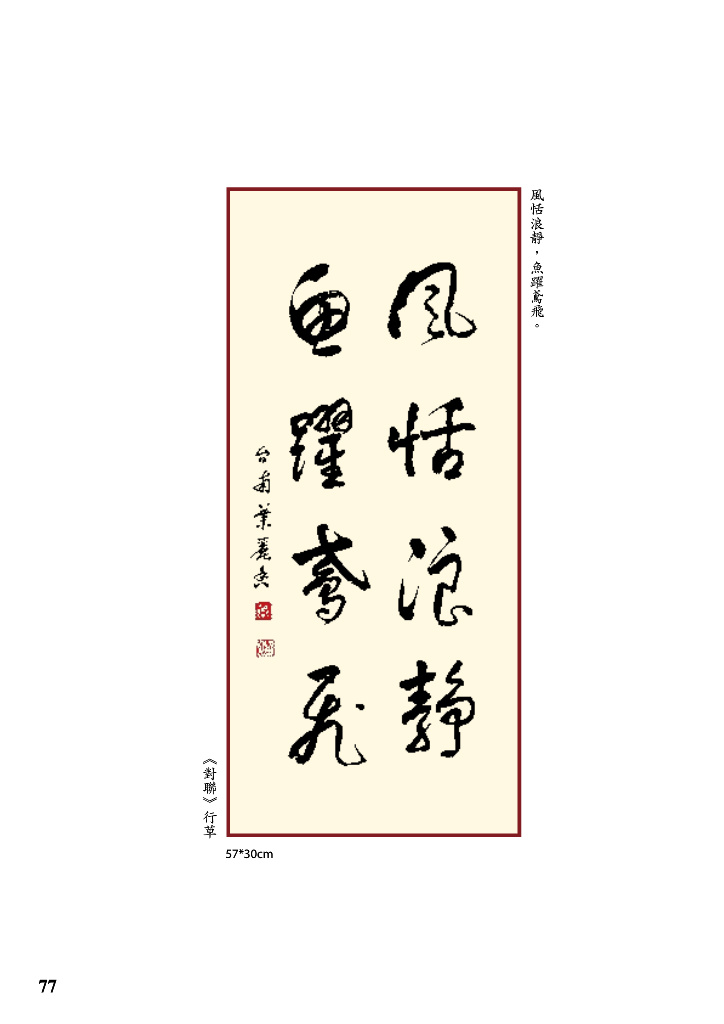 風恬浪靜，魚躍鳶飛。
風恬浪靜
魚躍鳶飛
台南葉麗香
《對聯》行草
57*30cm
77